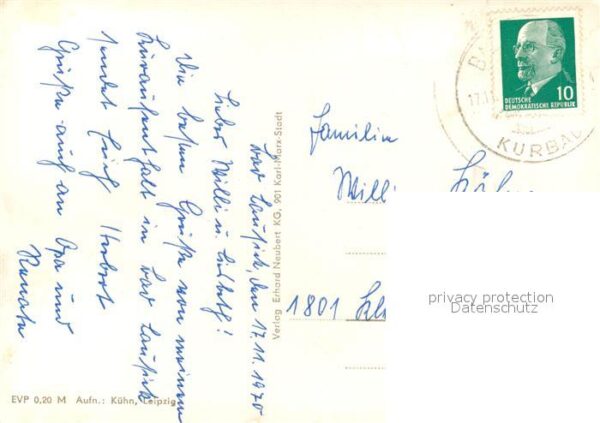 Bad Lausick, den 17.11.1970
Lieber Willi u. Liesbeth!
Die besten Grüße von meinem
Kuraufenthalt in Bad Lausick
sendet Euch Herbert
Grüße auch an Opa und
Renate
Verlag Erhard Neubert KG, 901 Karl-Marx-Stadt
EVP 0,20 M Aufn.: Kühn, Leipzig
17.11
KURBAD
DEUTSCHE
DEMOKRATISCHE REPUBLIK
10
Familie
Willi
1801
privacy protection
Datenschutz